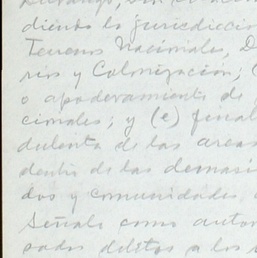 Durango, 
diendo la jurisdicción
Terrenos Nacionales, D
rios y Colonización; (
o apoderamiento de
cionales; y (e) final
dulenta de las areas
dentro de las demasí
dos y comunidades
Señala como autor
sados delitos a los